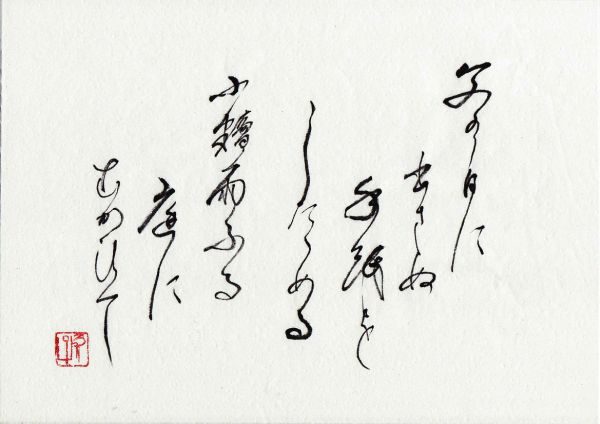 父の日に
出さぬ
手紙を
したためる
小糠雨ふる
庭に
むかひて